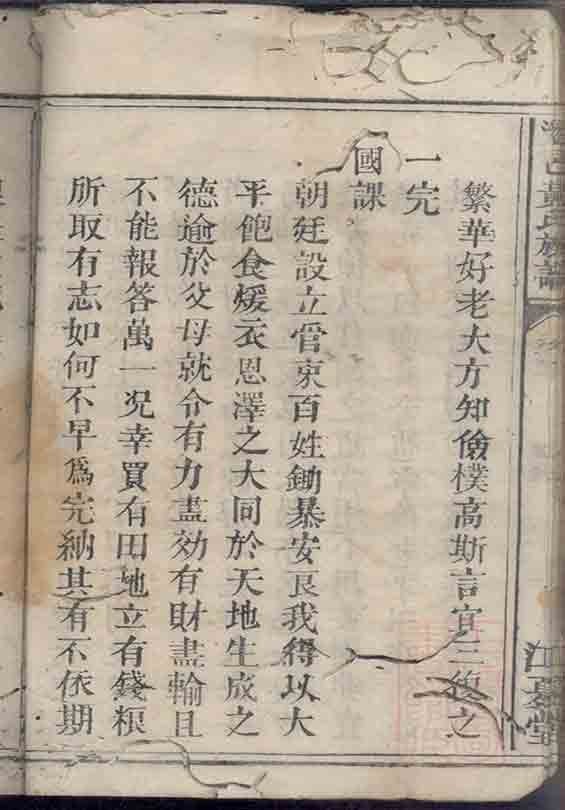 繁華好老大方知儉樸高斯言宜三復之
一完
國課
朝廷設立管束百姓鋤暴安良我得以大
平飽食煖衣恩澤之大同於天地生成之
德逾於父母就令有力盡効有財盡輸且
不能報答萬一况幸買有田地立有錢粮
所取有志如何不早爲完納其有不依期
邑黃氏族譜
江夏堂